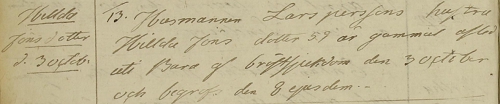 Hillda
Jöns dotter
d. 3 octob.
13. Husmannen Lars perssons hustru
Hillda Jöns dotter 59 år gammal afled
uti Bara af bröstsjukdom den 3 october
och begrofs den 8 ejusdem